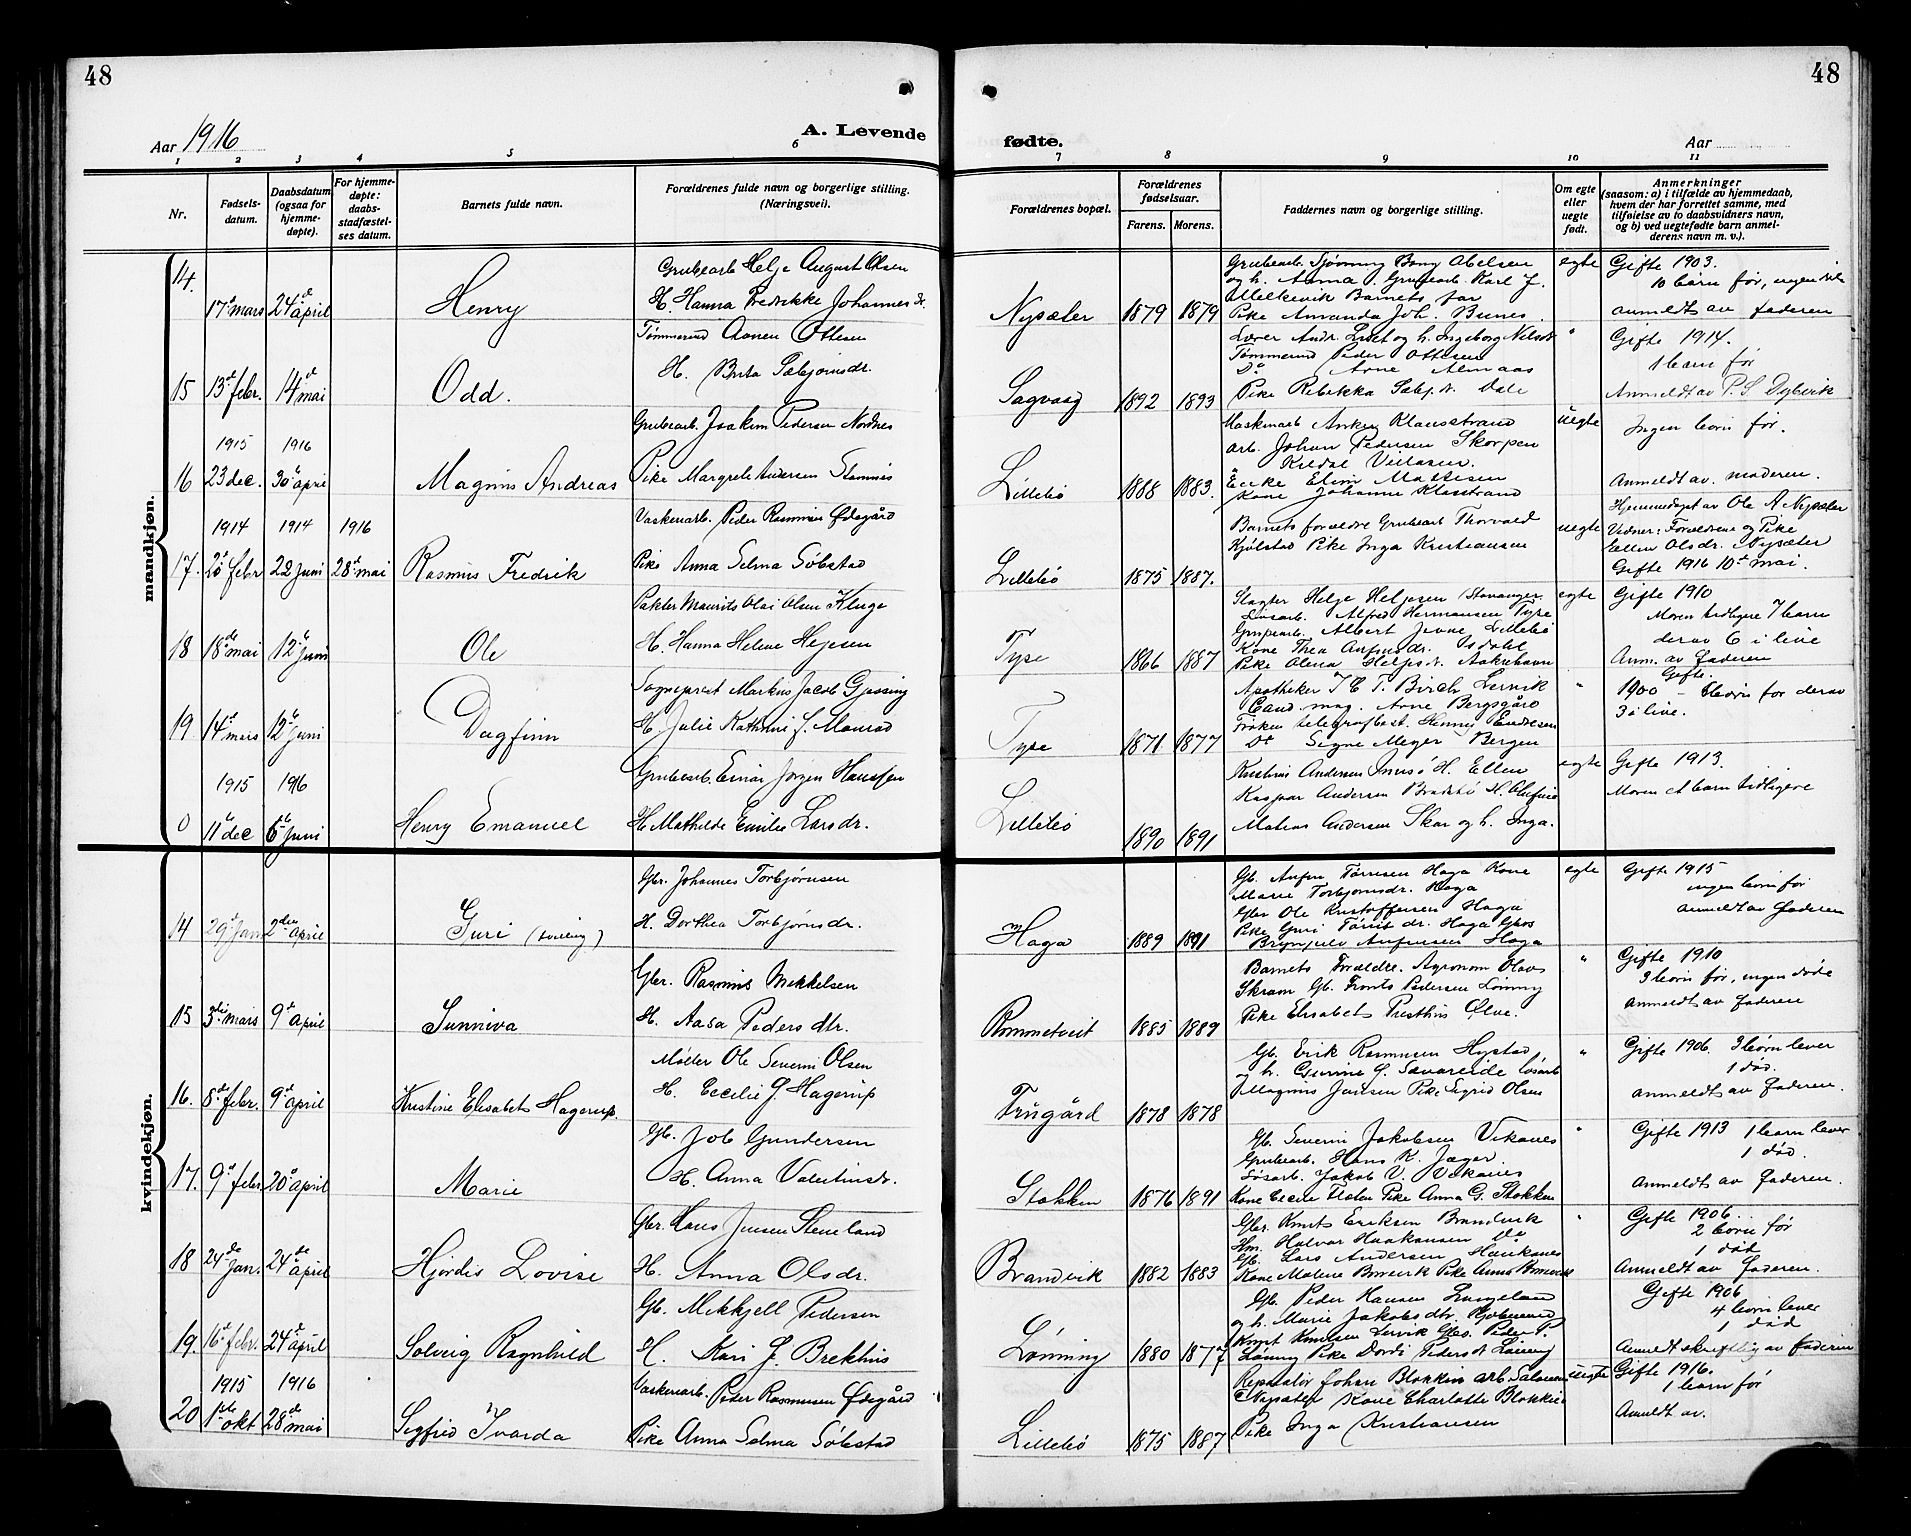 48
48
Aar 1916
A. Levende
fødte.
Aar
1 2 3 4 5 6 7 8 9 10 11
Nr.
Fødsels-
datum.
Daabsdatum
(ogsaa for
hjemme-
døpte).
For hjemme-
døpte:
daabs-
stadfæstel-
ses datum.
Barnets fulde navn.
Forældrenes fulde navn og borgerlige stilling.
(Næringsvei).
Forældrenes bopæl.
Forældrenes
fødselsaar.
Farens. Morens.
Faddernes navn og borgerlige stilling.
Om egte
eller
uegte
født.
Anmerkninger
(saasom: a) i tilfælde av hjemmedaab,
hvem der har forrettet samme, med
tilføielse av to daabsvidners navn,
og b) ved uegtefødte barn anmel-
derens navn m. v.).
mandkjøn.
14.
17de mars 24de april
Henry
Grubearb Helje August Olsen
H. Hanna Fredrikke Johannesdr.
Nysæter 1879 1879
Pike Amanda Joh. Bunes.
egte
Gifte 1903.
10 børn før, ingen
anmeldt av faderen
15 13de febr. 14de mai
Odd.
Tømmermd Aanen Ottesen
H. Brita Sæbjørnsdr.
Sagvaag 1892 1893
Lærer Andr. Lidet og h. Ingeborg Nelsdr
Tømmermd Peder Ottesen
Do Arne Almaas
Pike Rebekka Sæbj.dr. Dale
"
Gifte 1914.
1 barn før
Anmeldt av P. S. Dybvik
1915 1916
16 23 dec. 30te april
Magnus Andreas
Grubearb. Joakim Pedersen Nordnes
Pike Margrete Andersen Stamnes
Lillebø 1888 1883.
Maskinarb Anker Klausstrand
arb. Johan Pedersen Skorpen
Enke Elim Mattesen
Kone Johanne Klasstrand
uegte
Ingen børn før.
Anmeldt av moderen.
1914 1914 1916
17. 20de febr 22 juni 28de mai
Rasmus Fredrik
Vaskeriarb. Peder Rasmussen Ødegård
Pike Anna Selma Søbstad
Lillebø 1875 1887.
Barnets forældre Grubearb Thorvald
Kjølstad Pike Inga Kristiansen
uegte
Hjemmedøpt av Ole A Nysæter
Vidner: Forældrene og Pike
Ellen Olsdr. Nysæter
Gifte 1916 10de mai.
18 18de mai 12te juni
Ole
Pakter Maurits Olai Olsen Kluge
H. Hanna Helene Hejesen
Tyse 1866 1887
Slagter Helje Heljesen Stavanger
Løsarb. Alfred Hermansen Tyse
Grubearb. Albert Jevne Lillebø
Kone Thea Anfinsdr. Isdahl
Pike Olena Heljesdr. Aakrehavn
egte
Gifte 1910
Moren tidligere 7 barn
derav 6 i live
Anm. av faderen
19 14de mars 12te juni
Dagfinn
Sogneprest Markus Jacob Gjessing
H. Julie Kathrine f. Monrad
Tyse 1871 1877
Apotheker J C T. Birch Lervik
Cand mag. Arne Bergsgård
Frøken telegrafbest. Henny Endresen
Do Signe Meyer Bergen
"
Gifte.
1900 – børn før derav
3 i live.
1915 1916
0 11te dec 6te juni
Henry Emanuel
Grubearb. Einar Jørgen Hanssen
H Mathilde Emilie Larsdr.
Lillebø 1890 1891
Kaspar Andersen
Matias Andersen Skar og h. Inga.
egte
Gifte 1913.
Moren et barn tidligere
kvindekjøn.
14 29de Jan 2den april
Guri (tvilling)
Gbr. Johannes Torbjørnsen
H. Dorthea Torbjørnsdr.
Haga 1889 1891
Gb. Anfin Tørresen Haga Kone
Marie Torbjørnsdr. Haga
Gbr Ole Kristoffersen Haga
Pike Guri Tørrisdr. Haga Gbs
Brynjulv Anfinsen Haga
egte
Gifte 1915
ingen børn før
anmeldt av faderen
15 3die mars 9de april
Sunniva
Gbr. Rasmus Mikkelsen
H. Aasa Pedersdtr.
Rommetveit 1885 1889
Barnets Forældre. Agronom Olav
Skram Gb. Tronts Pedersen Lønning
Pike Elisabet Presthus Ølve.
"
Gifte 1910
3 børn før, ingen døde
anmeldt av faderen
16. 8de febr. 9de april
Kristine Elisabets Hagerup.
Møller Ole Severin Olsen
H. Cecilie G Hagerup
Trugård 1878 1878
Gb. Erik Rasmussen Hystad
og h. Gurine G. Sævareide løsarb
Magnus Jensen Pike Sigrid Olsen
"
Gifte 1906. 3 børn lever
1 død.
anmeldt av faderen.
17. 9de febr 20de april
Marie
Gb. Job Gundersen
H. Anna Valentinsdr.
Stokken 1876 1891
Gb. Severin Jakobsen Vikanes
Grubearb. Hans K. Jæger
Løsarb. Jakob V. Vikanes
Kone Cecilie Pike Anna G. Stokken
"
Gifte 1913 1 barn lever
1 død.
anmeldt av faderen.
18 24de Jan. 24de april
Hjørdis Lovise
Gbr. Hans Jensen Steneland
H. Anna Olsdr.
Brandvik 1882 1883
Gbr. Knut Eriksen Brandvik
Hm. Halvor Haakonsen Do
Gb. Lars Andersen Haukanes
Kone Malene Brandvik Pike Anna
"
Gifte 1906.
2 børn før
1 død
Anmeldt av faderen.
19. 16de febr. 24de april
Solveig Ragnhild
Gb. Mikkjell Pedersen
H. Kari J. Brekhus
Lønning 1880 1877
Gb. Peder Hansen
og h. Marie Jakobsdtr.
Knut Knutsen Lervik Gbs. Peder P.
Lønning Pike Dordi Pedersdt Lønning
Gifte 1906
4 børn lever
1 død
Anmeldt skriftlig av faderen
1915 1916
20 1ste okt 28de mai
Sigfrid Ivarda
Vaskeriarb. Peder Rasmussen Ødegård
Pike Anna Selma Søbstad
Lillebø 1875 1887
Reparatør Johan Blokkin arb
Nysæter Kone Charlotte Blokkin
Pike Inga Kristiansen
uegte
Gifte 1916.
1 barn før
Anmeldt av.